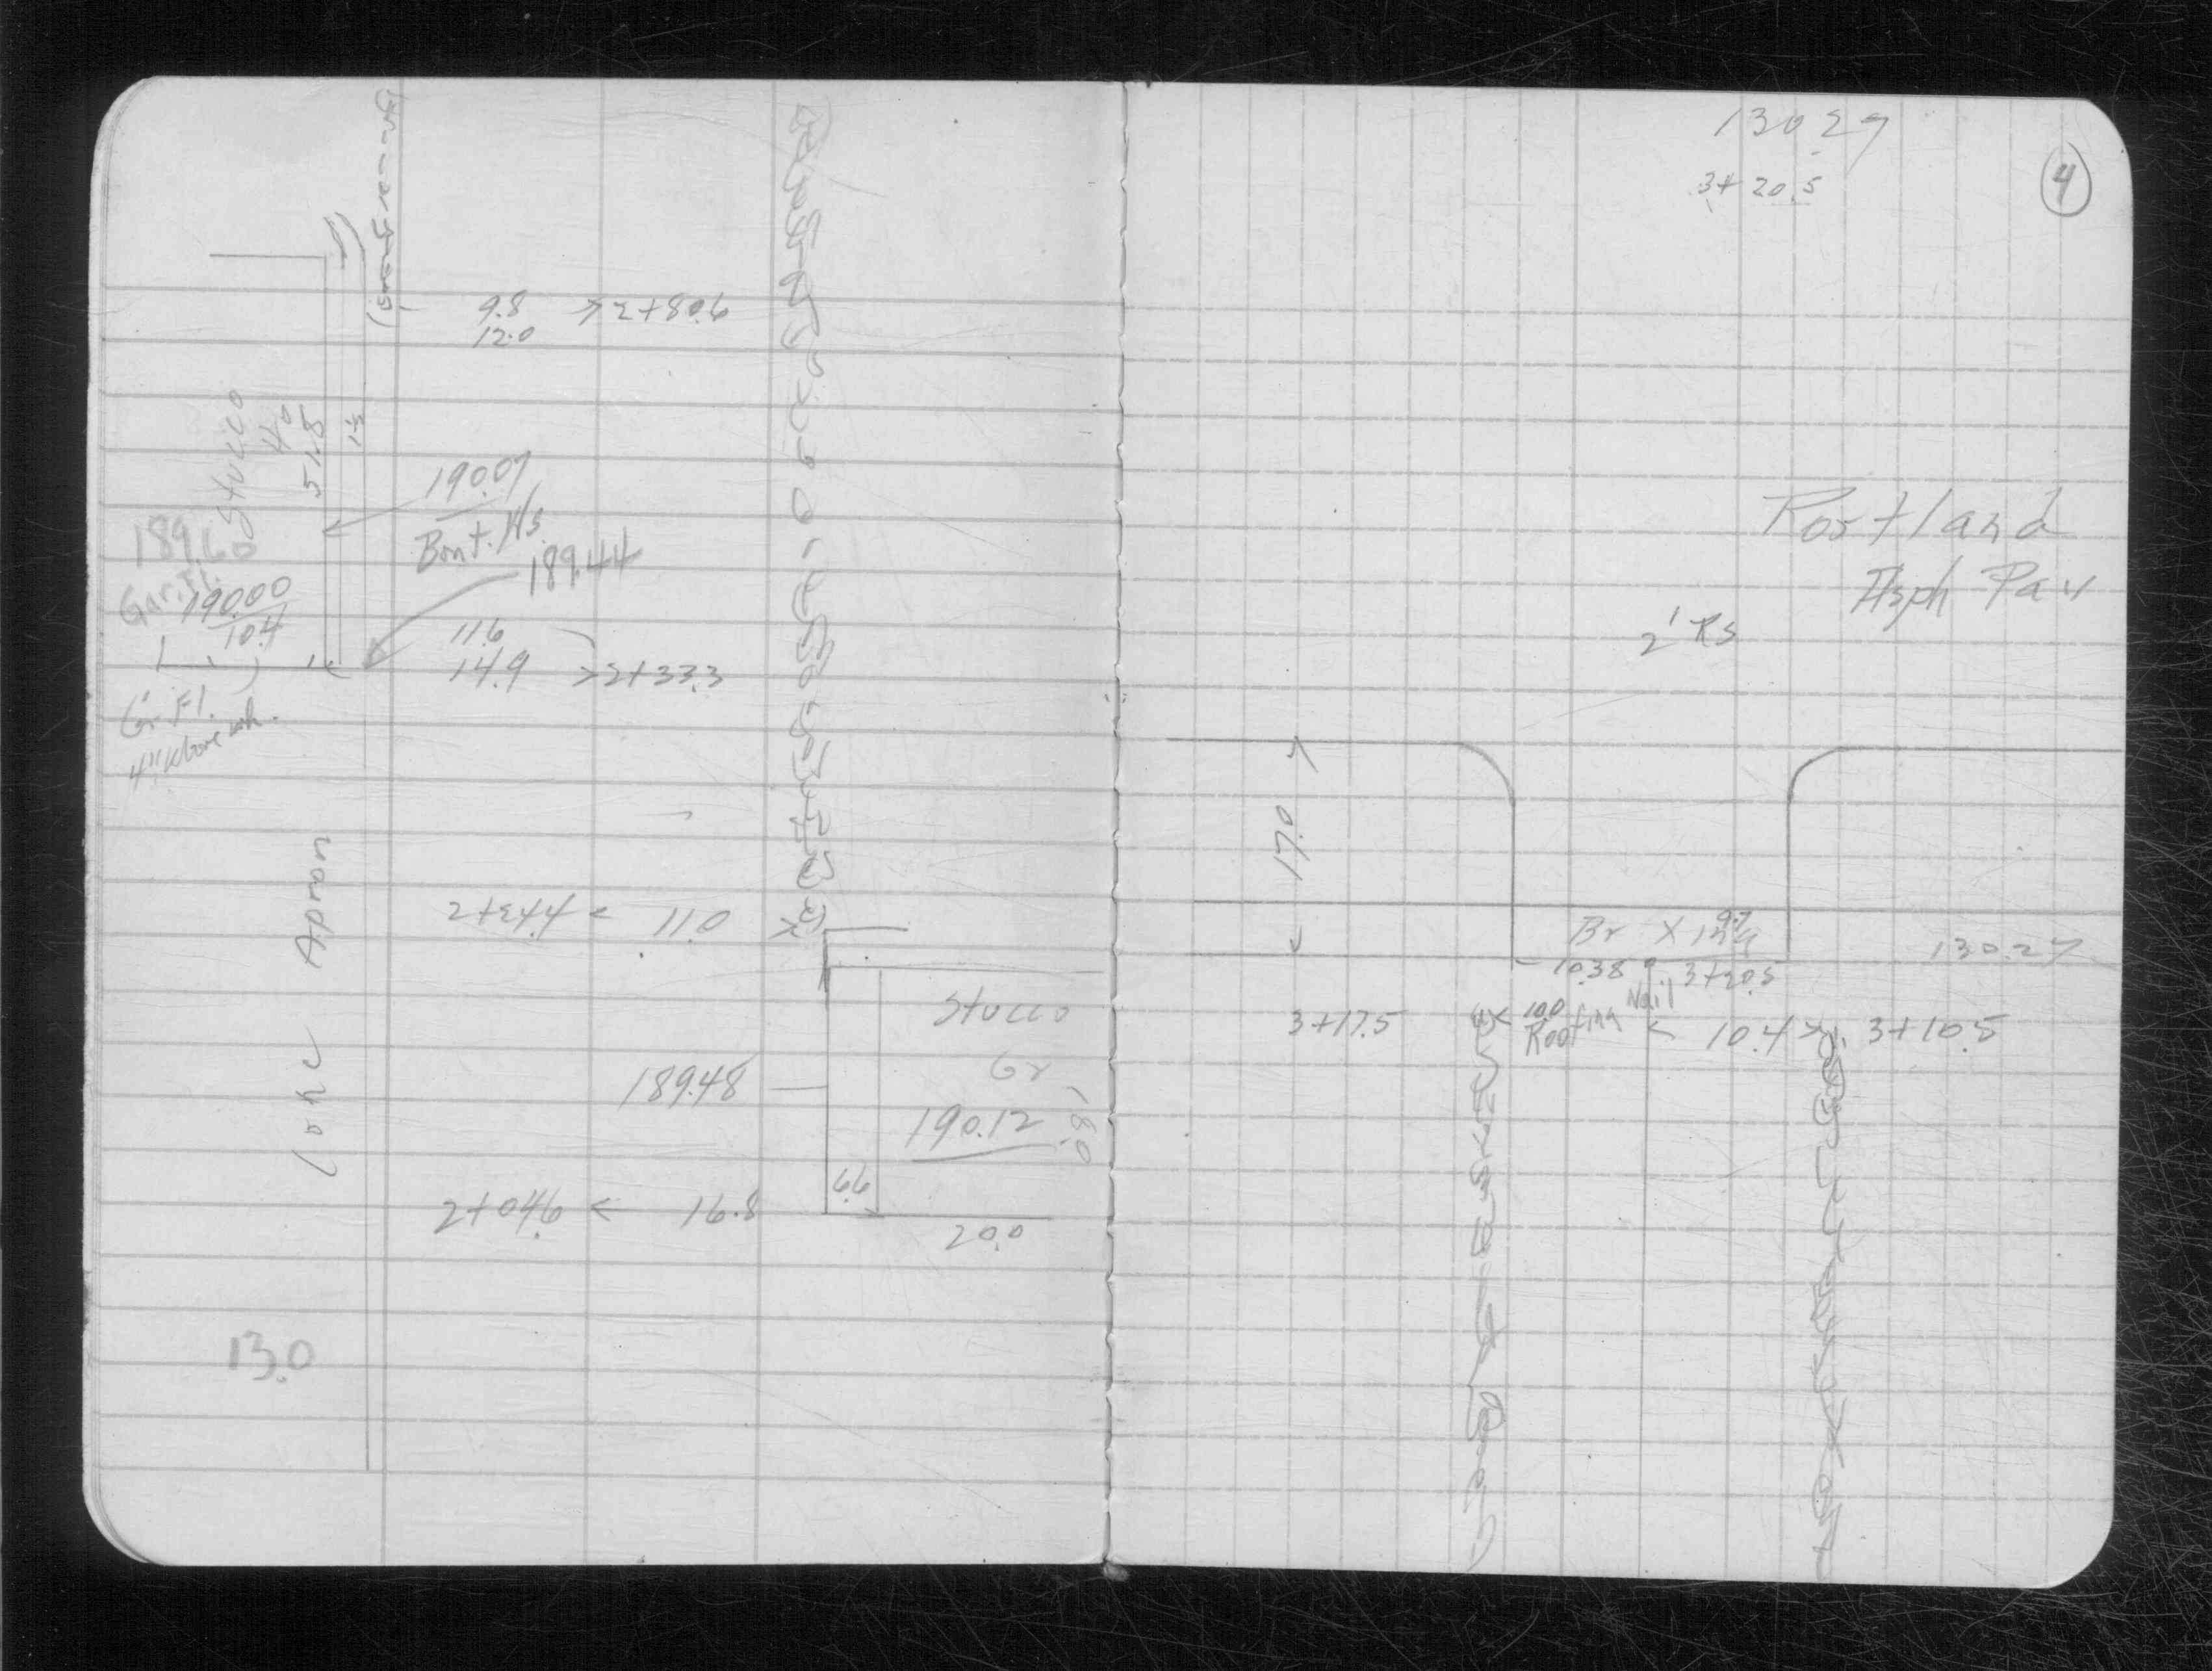 9.8 > 2+80.6
12.0
Stucco
40
51.8
190.07
Bmt. Ws.
189.44
189.60
Gar. Fl.
190.00
10.4
11.6
14.9 > 2+33.3
Gr. Fl.
4" Above
Conc Apron
11.0
Stucco
Gr
189.48
190.12
18.0
6.6
2+04.6 < 16.8
20.0
13.0
130.27
3+20.5
4
Portland
Asph Pav
2' Rs
17.0
Br X
9.7
130.27
10.38
3+20.5
3+17.5
10.0
Roofing Nail
< 10.4 > 3+10.5